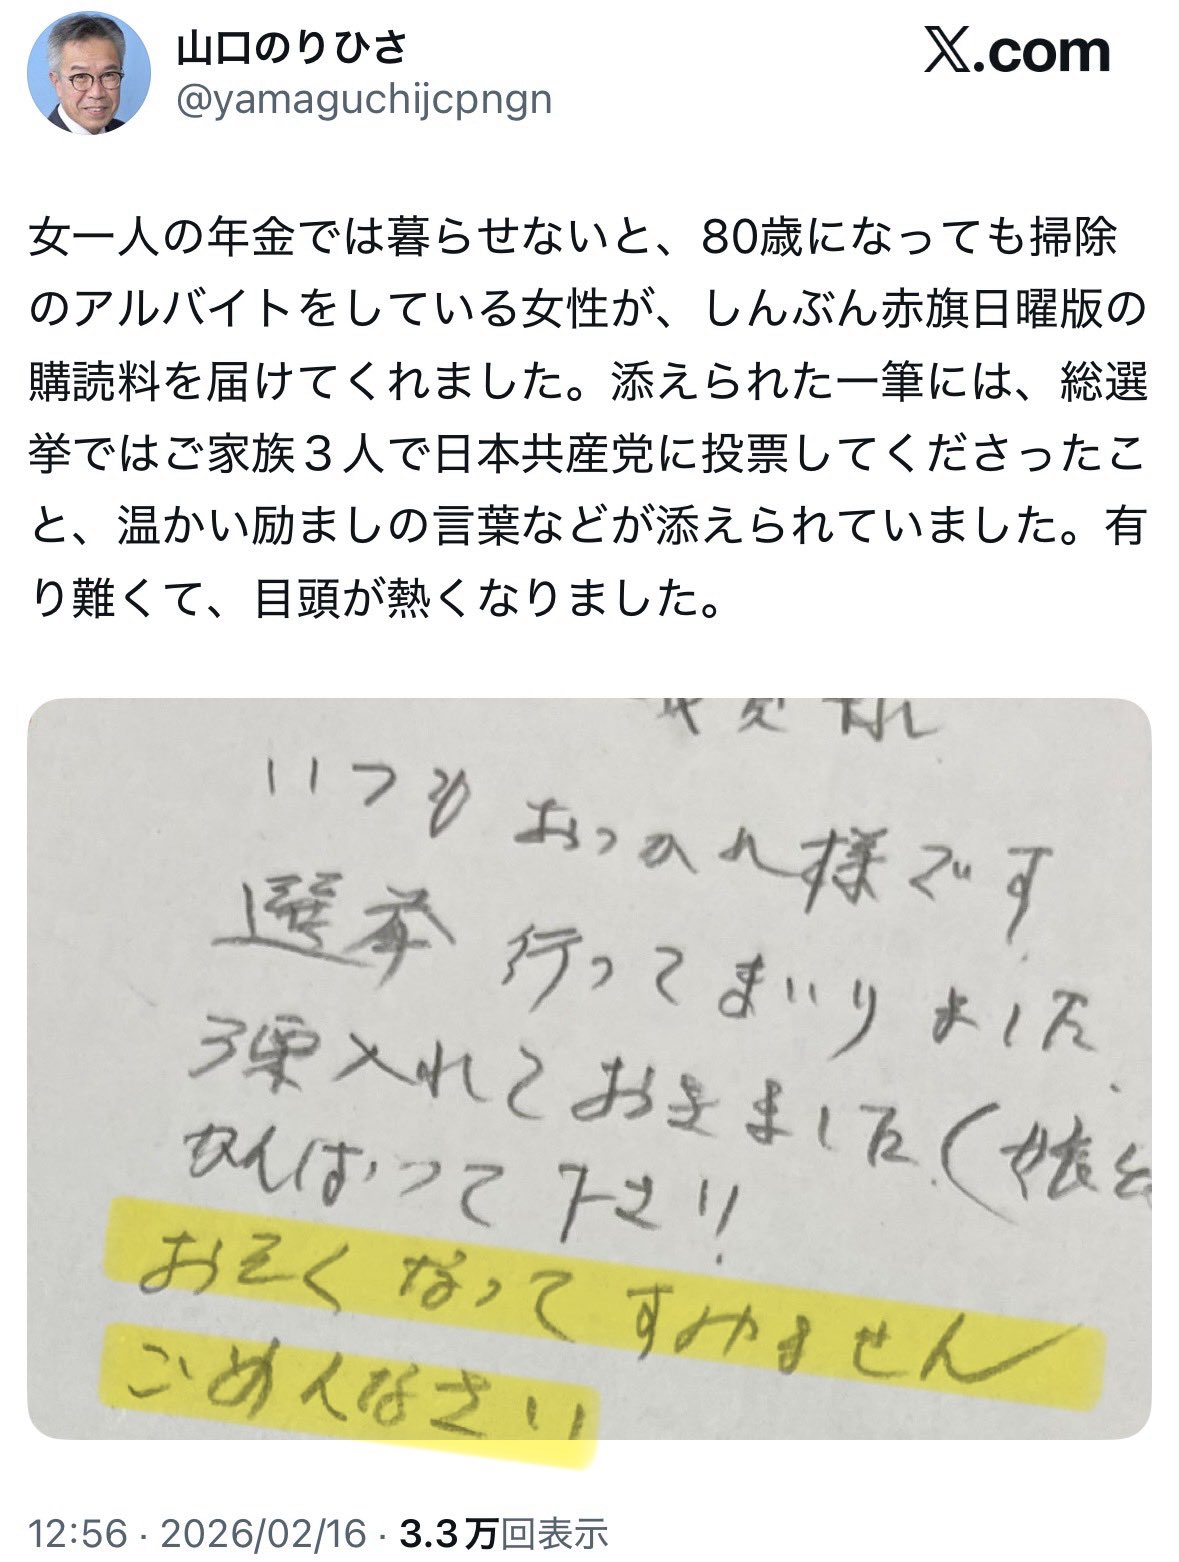 山口のりひさ
𝕏.com
@yamaguchijcpngn
女一人の年金では暮らせないと、80歳になっても掃除
のアルバイトをしている女性が、しんぶん赤旗日曜版の
購読料を届けてくれました。添えられた一筆には、総選
挙ではご家族３人で日本共産党に投票してくださったこ
と、温かい励ましの言葉などが添えられていました。有
り難くて、目頭が熱くなりました。
いつもおつかれ様です
選挙 行ってまいりました
3票入れておきました(娘
がんばって下さい!
おそくなってすみません
ごめんなさい
12:56 · 2026/02/16 · 3.3万回表示